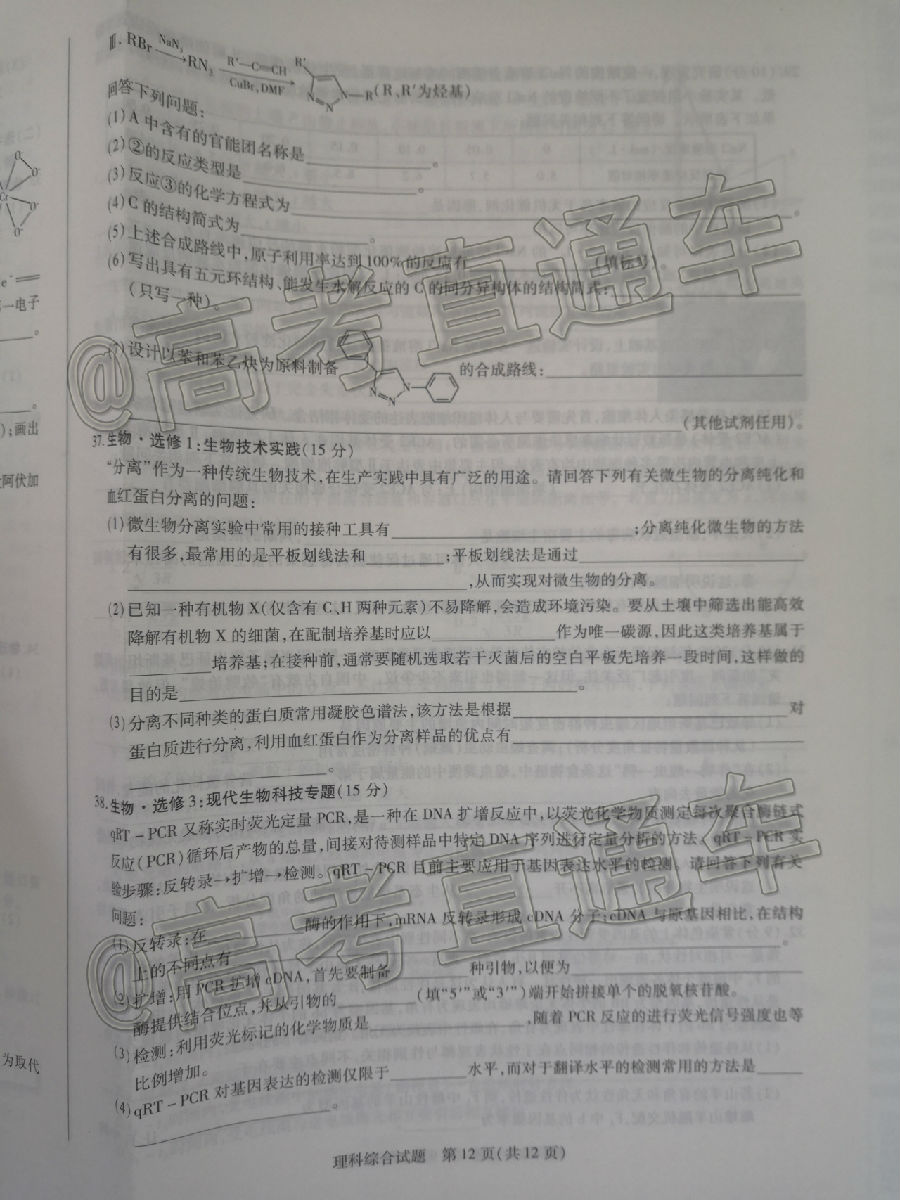 Ⅲ. RBr NaN₃ RN₃ R'—C≡CH CuBr, DMF R' N N N—R(R、R'为烃基)
问答下列问题:
(1)A中含有的官能团名称是
(2)②的反应类型是
(3)反应③的化学方程式为
(4)C的结构简式为
(5)上述合成路线中,原子利用率达到100%的反应有 (填标号)。
(6)写出具有五元环结构、能发生水解反应的C的同分异构体的结构简式:
(只写一种)。
(7)设计以苯和苯乙炔为原料制备 N N N 的合成路线:
(其他试剂任用)。
37.生物·选修1:生物技术实践(15分)
“分离”作为一种传统生物技术,在生产实践中具有广泛的用途。请回答下列有关微生物的分离纯化和
血红蛋白分离的问题:
(1)微生物分离实验中常用的接种工具有 ;分离纯化微生物的方法
有很多,最常用的是平板划线法和 ;平板划线法是通过
,从而实现对微生物的分离。
(2)已知一种有机物X(仅含有C、H两种元素)不易降解,会造成环境污染。要从土壤中筛选出能高效
降解有机物X的细菌,在配制培养基时应以 作为唯一碳源,因此这类培养基属于
培养基;在接种前,通常要随机选取若干灭菌后的空白平板先培养一段时间,这样做的
目的是 。
(3)分离不同种类的蛋白质常用凝胶色谱法,该方法是根据 对
蛋白质进行分离,利用血红蛋白作为分离样品的优点有
。
38.生物·选修3:现代生物科技专题(15分)
qRT-PCR又称实时荧光定量PCR,是一种在DNA扩增反应中,以荧光化学物质测定每次聚合酶链式
反应(PCR)循环后产物的总量,间接对待测样品中特定DNA序列进行定量分析的方法。qRT-PCR实
验步骤:反转录→扩增→检测。qRT-PCR目前主要应用于基因表达水平的检测。请回答下列有关
问题:
(1)反转录:在 酶的作用下,mRNA反转录形成cDNA分子;cDNA与原基因相比,在结构
上的不同点有 。
(2)扩增:用PCR扩增cDNA,首先要制备 种引物,以便为
酶提供结合位点,并从引物的 (填“5'”或“3'”)端开始拼接单个的脱氧核苷酸。
(3)检测:利用荧光标记的化学物质是 ,随着PCR反应的进行荧光信号强度也等
比例增加。
(4)qRT-PCR对基因表达的检测仅限于 水平,而对于翻译水平的检测常用的方法是
。
理科综合试题 第12页(共12页)
@高考直通车
@高考直通车
一电子
);画出
阿伏加
为取代